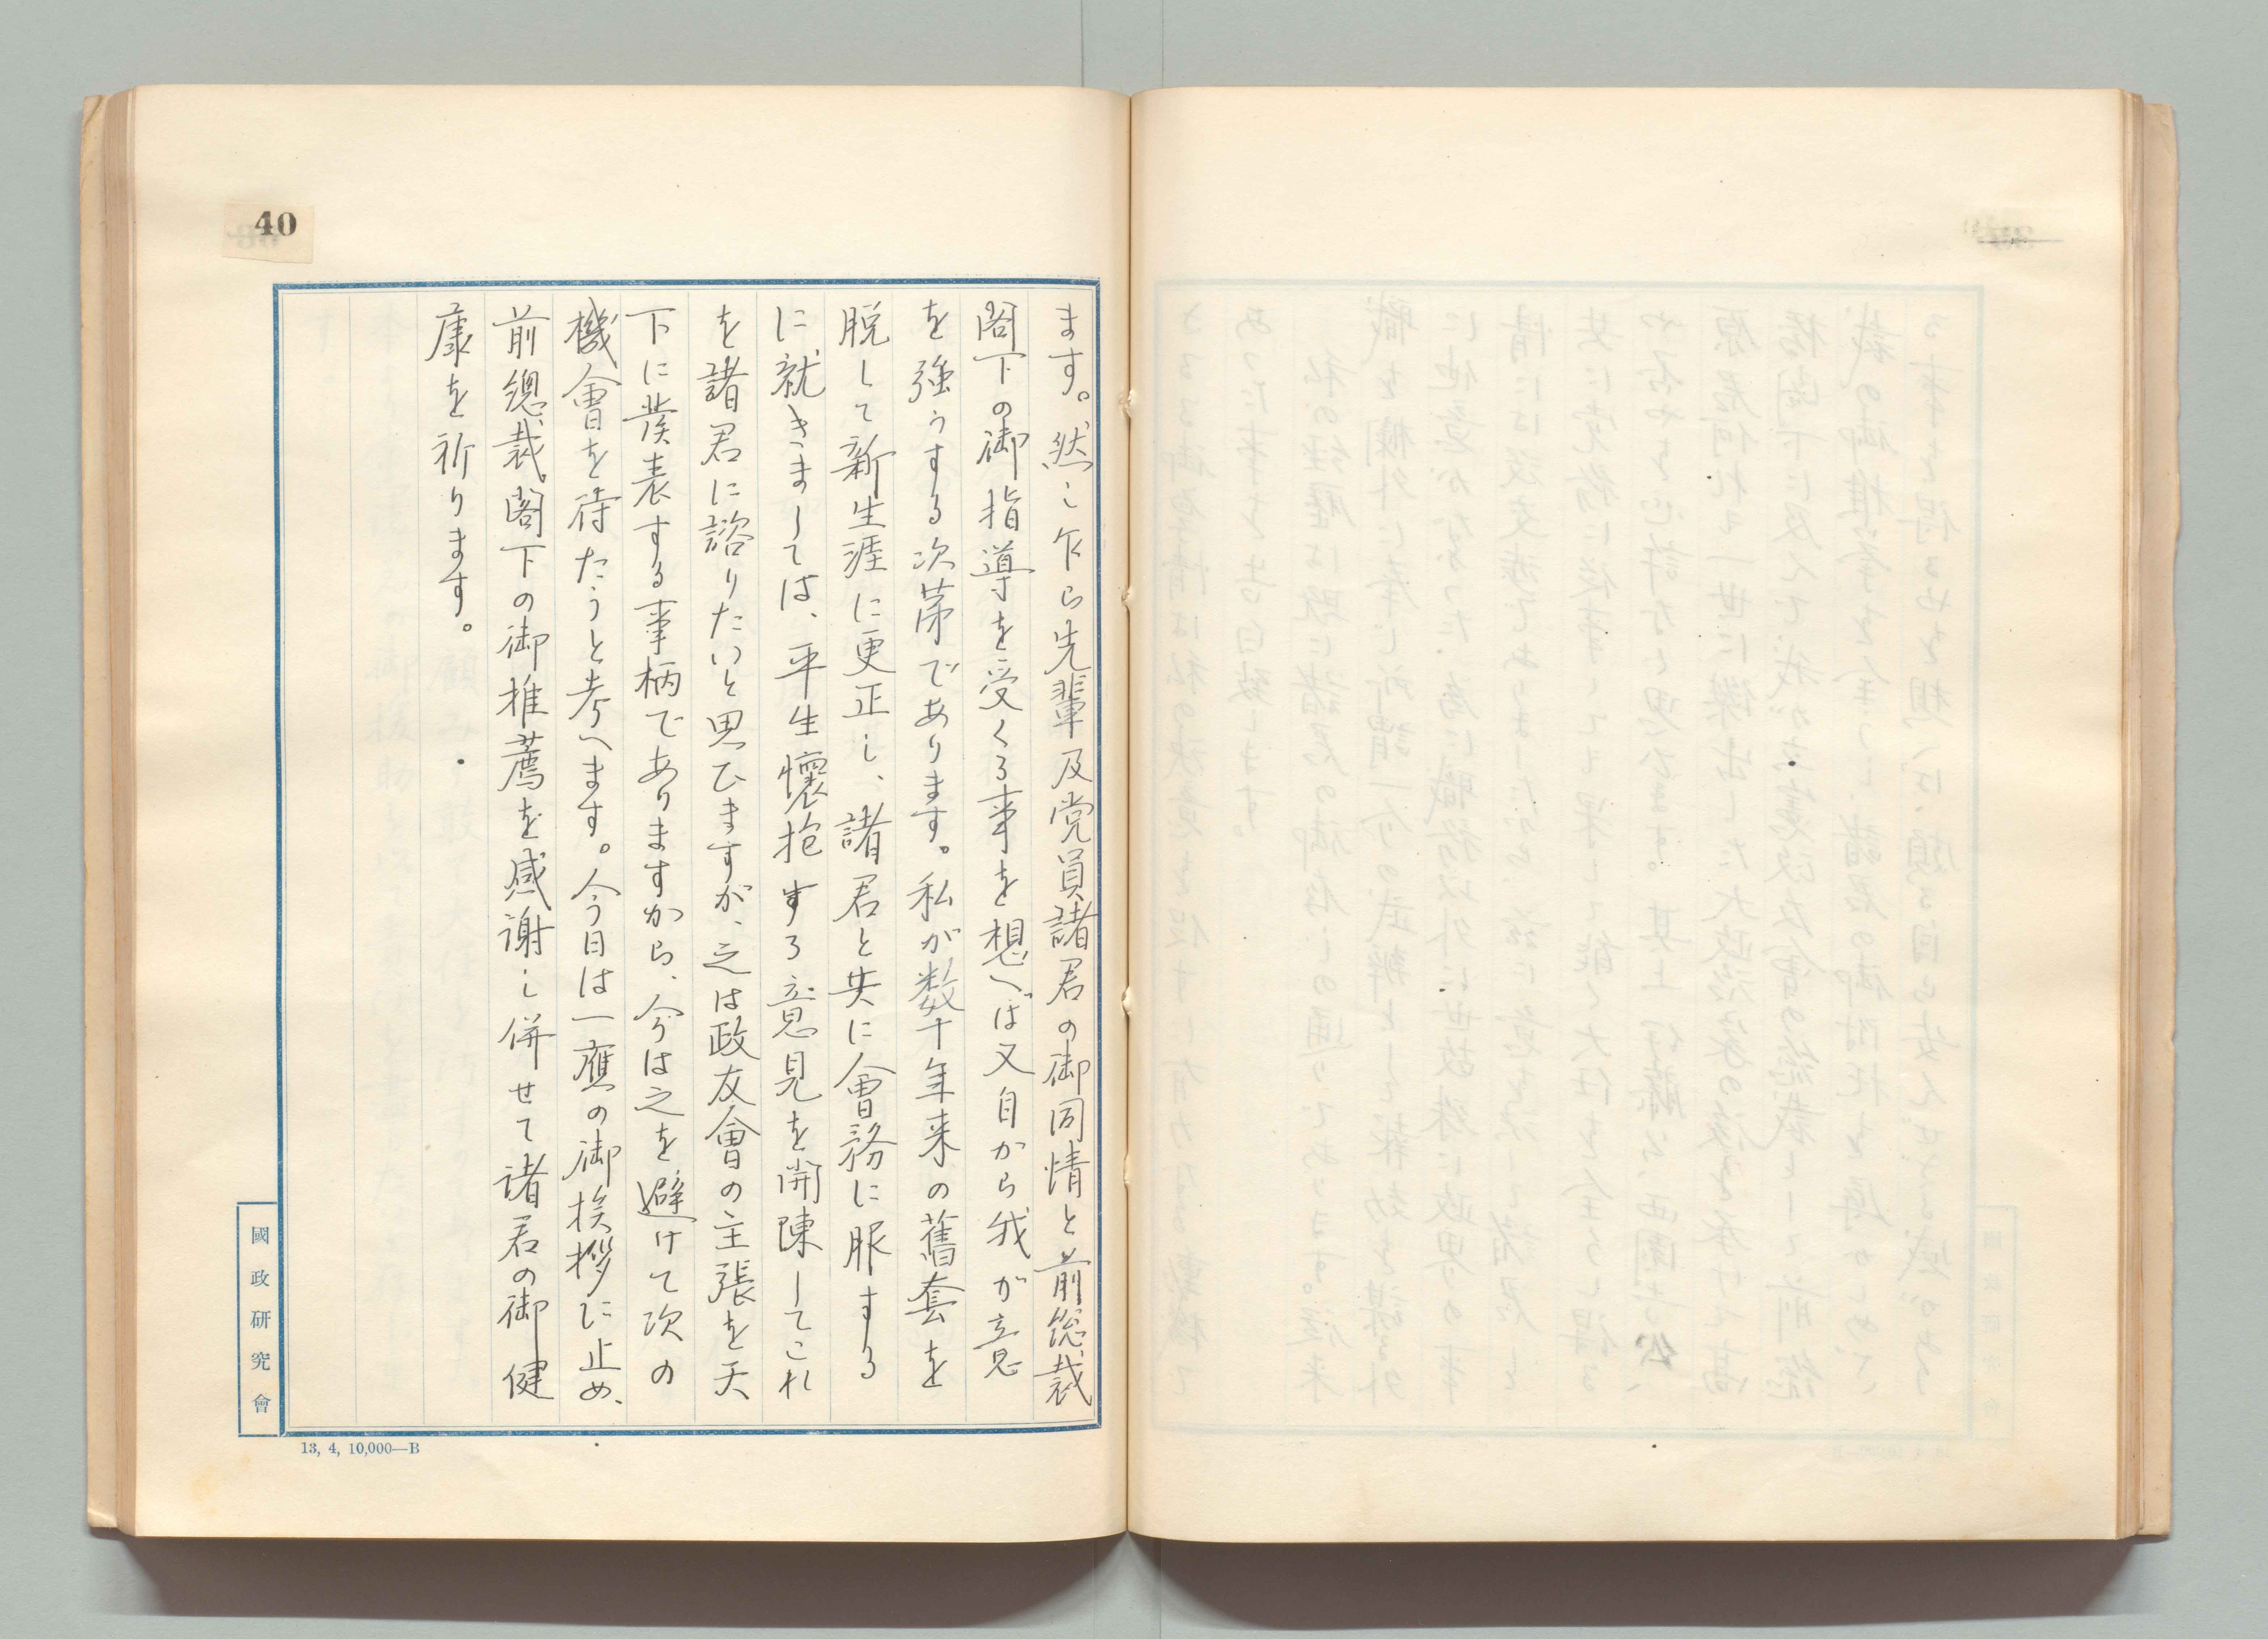 40
ます。然し乍ら先輩及党員諸君の御同情と前総裁
閣下の御指導を受くる事を想へば又自から我が意
を強うする次第であります。私が数十年来の舊套を
脱して新生涯に更正し、諸君と共に會務に服する
に就きましては、平生懐抱する意見を開陳してこれ
を諸君に諮りたいと思ひますが、之は政友會の主張を天
下に発表する事柄でありますから、今は之を避けて次の
機會を待たうと考へます。今日は一應の御挨拶に止め、
前總裁閣下の御推薦を感謝し併せて諸君の御健
康を祈ります。
國政研究會
13, 4, 10,000—B